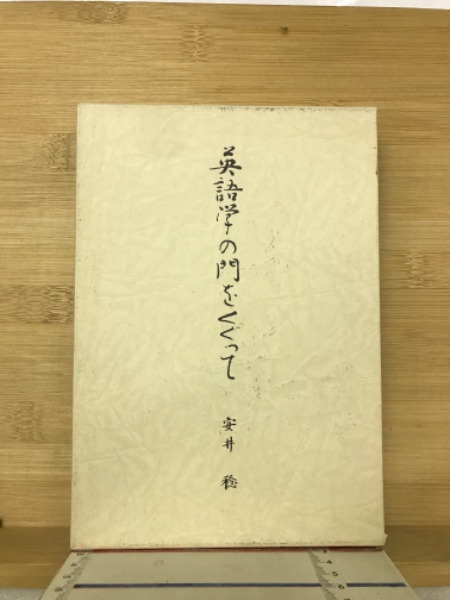 英語学の門をくぐって
安井 稔